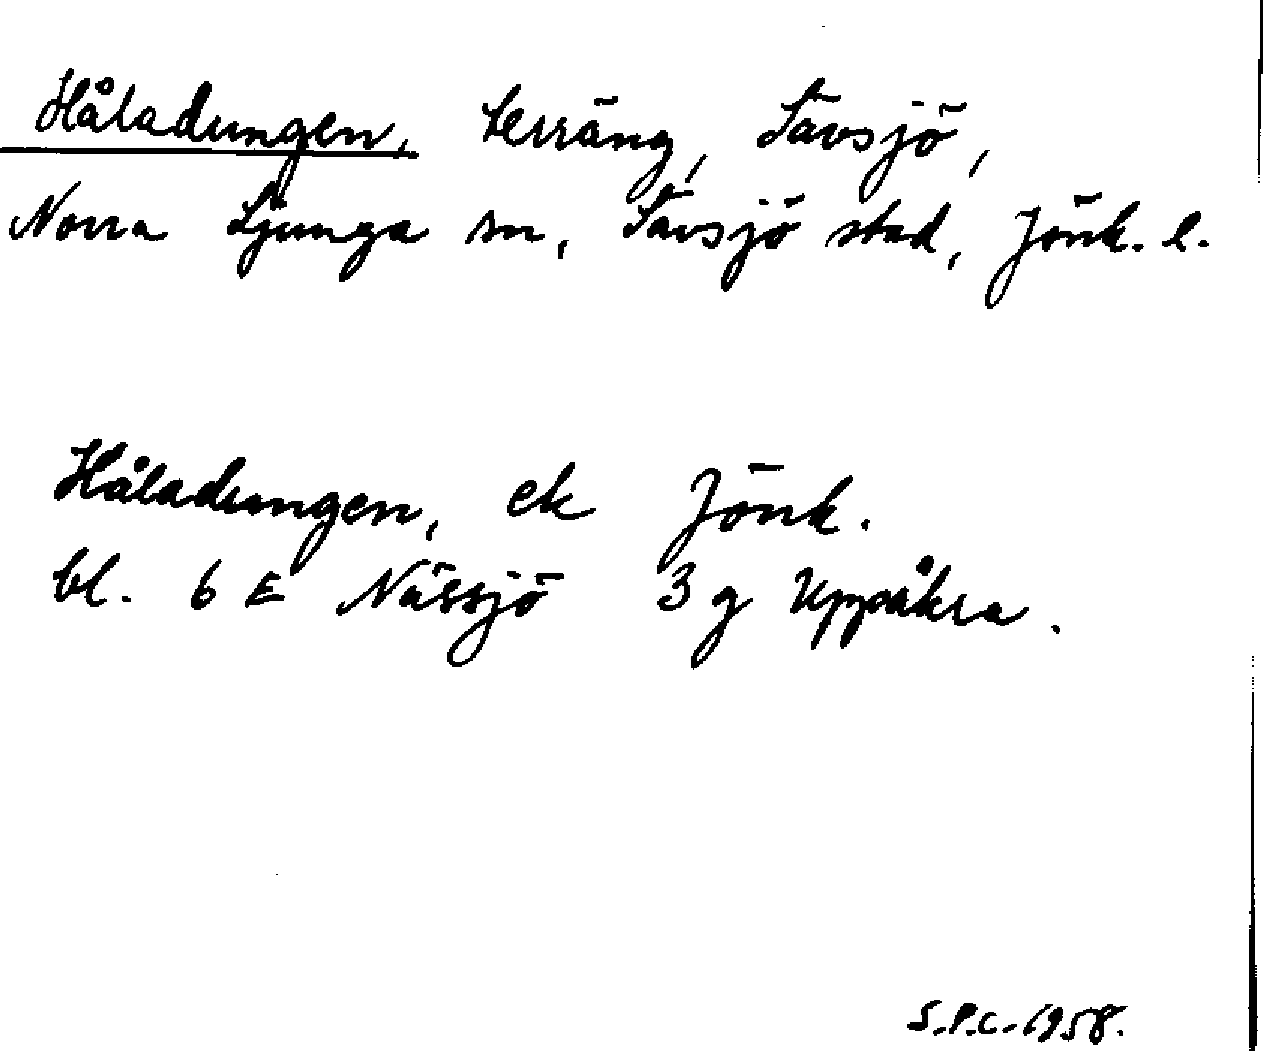 Håladungen, terräng, Sävsjö,
Norra Ljunga sn, Sävsjö stad, Jönk. l.
Håladungen, ek Jönk.
bl. 6 E Nässjö 3 g Uppåkra.
S.P.C. 1958.